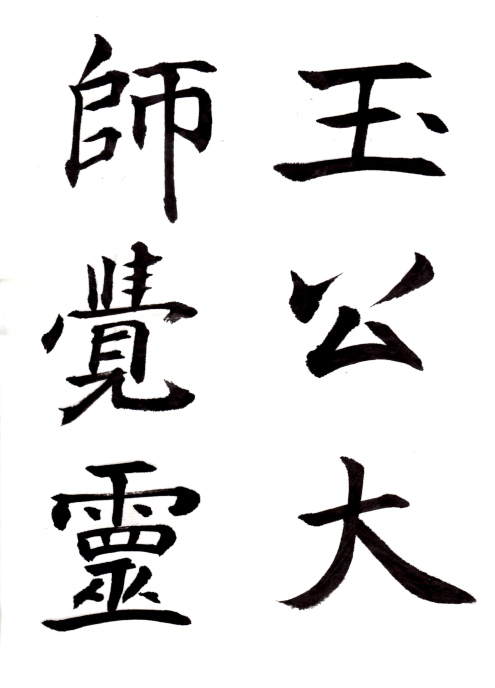 玉公大
師覺靈